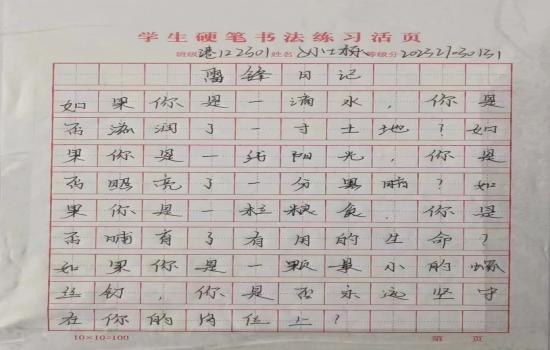 学生硬笔书法练习活页
班级港122301姓名刘士桥等级分202321030131
雷锋日记
如果你是一滴水，你是
否滋润了一寸土地？如
果你是一线阳光，你是
否照亮了一分黑暗？如
果你是一粒粮食，你是
否哺育了有用的生命？
如果你是一颗最小的螺
丝钉，你是否永远坚守
在你的岗位上？
10×10=100 第 页